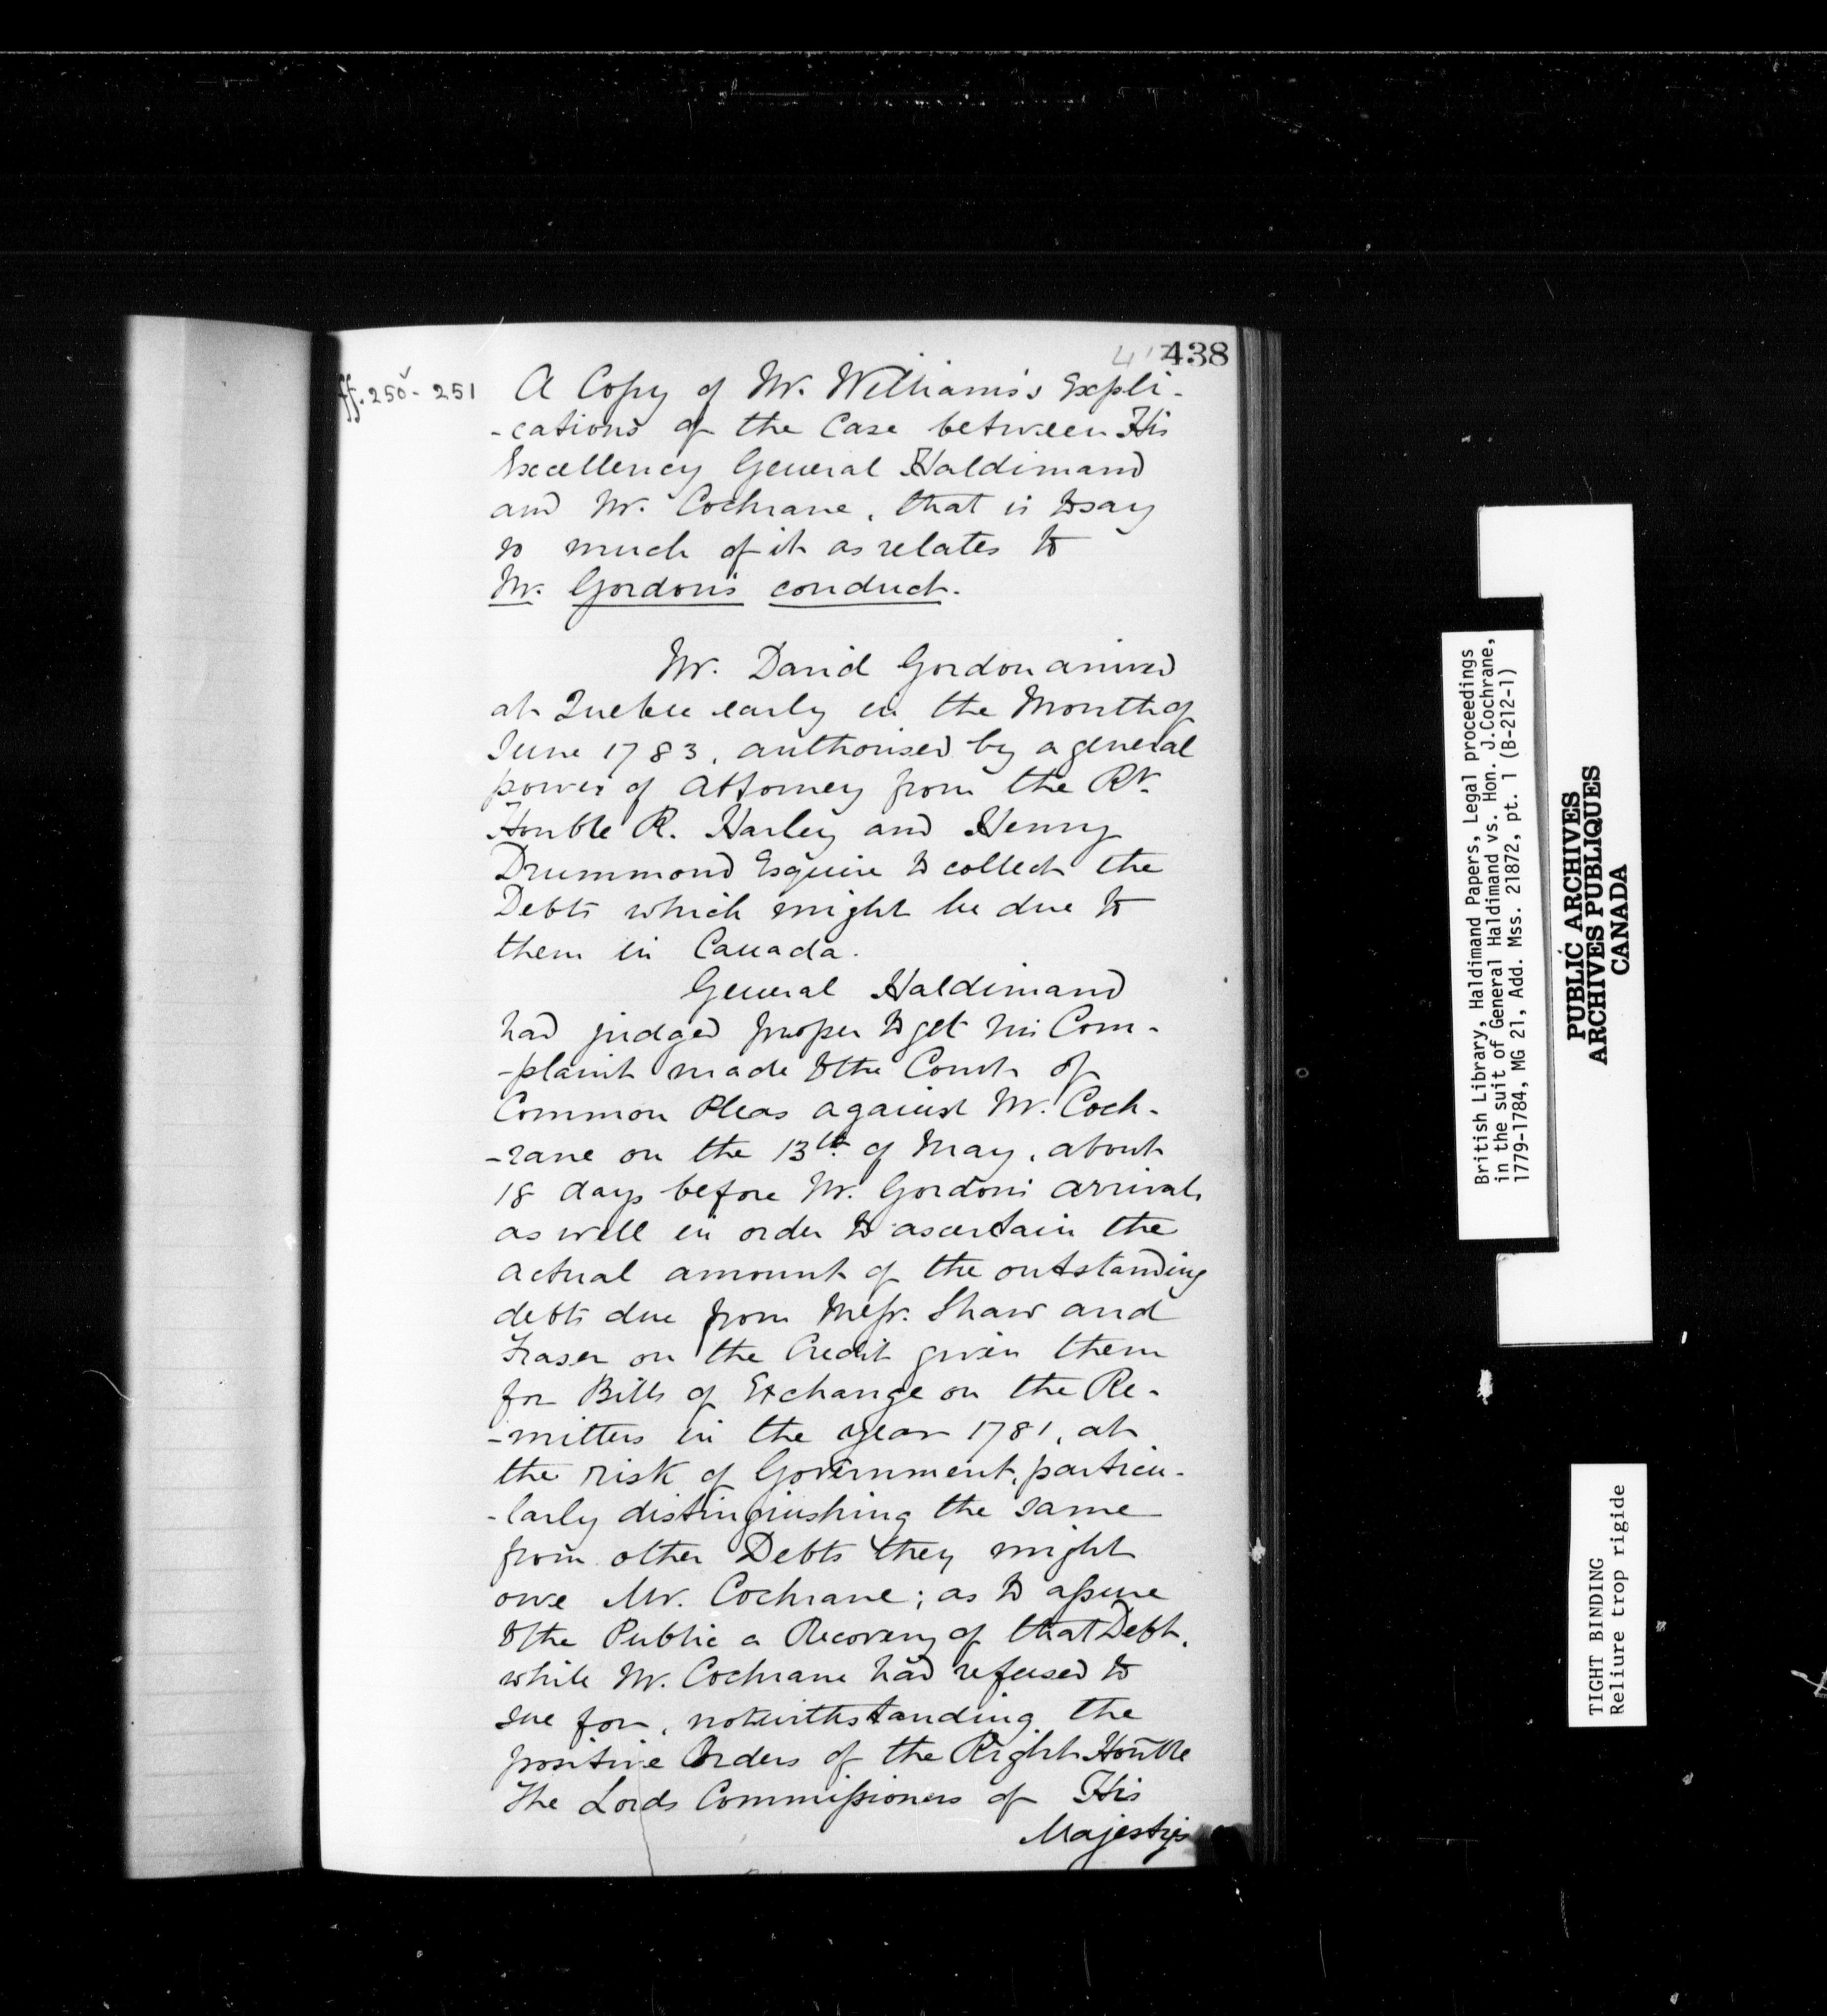 438
ff. 250v - 251
A Copy of Mr. Williams's Expli-
-cations of the Case between His
Excellency General Haldimand
and Mr. Cochrane, that is to say
so much of it as relates to
Mr. Gordon's conduct.
Mr. David Gordon arrived
at Quebec early in the Month of
June 1783, authorised by a general
power of Attorney from the Rt.
Honble R. Harley and Henry
Drummond Esquire to collect the
Debts which might be due to
them in Canada.
General Haldimand
had judged proper to get his Com-
-plaint made to the Court of
Common Pleas against Mr. Coch-
-rane on the 13th of May, about
18 days before Mr. Gordon's arrival,
as well in order to ascertain the
actual amount of the outstanding
debts due from Messr. Shaw and
Fraser on the Credit given them
for Bills of Exchange on the Re-
-mitters in the year 1781, at
the risk of Government, particu-
-larly distinguishing the same
from other Debts they might
owe Mr. Cochrane; as to assure
to the Public a Recovery of that Debt,
while Mr. Cochrane had refused to
sue for, notwithstanding the
positive Orders of the Right Honble
The Lords Commissioners of His
Majesty's
British Library, Haldimand Papers, Legal proceedings
in the suit of General Haldimand vs. Hon. J.Cochrane,
1779-1784, MG 21, Add. Mss. 21872, pt. 1 (B-212-1)
PUBLIC ARCHIVES
ARCHIVES PUBLIQUES
CANADA
TIGHT BINDING
Reliure trop rigide